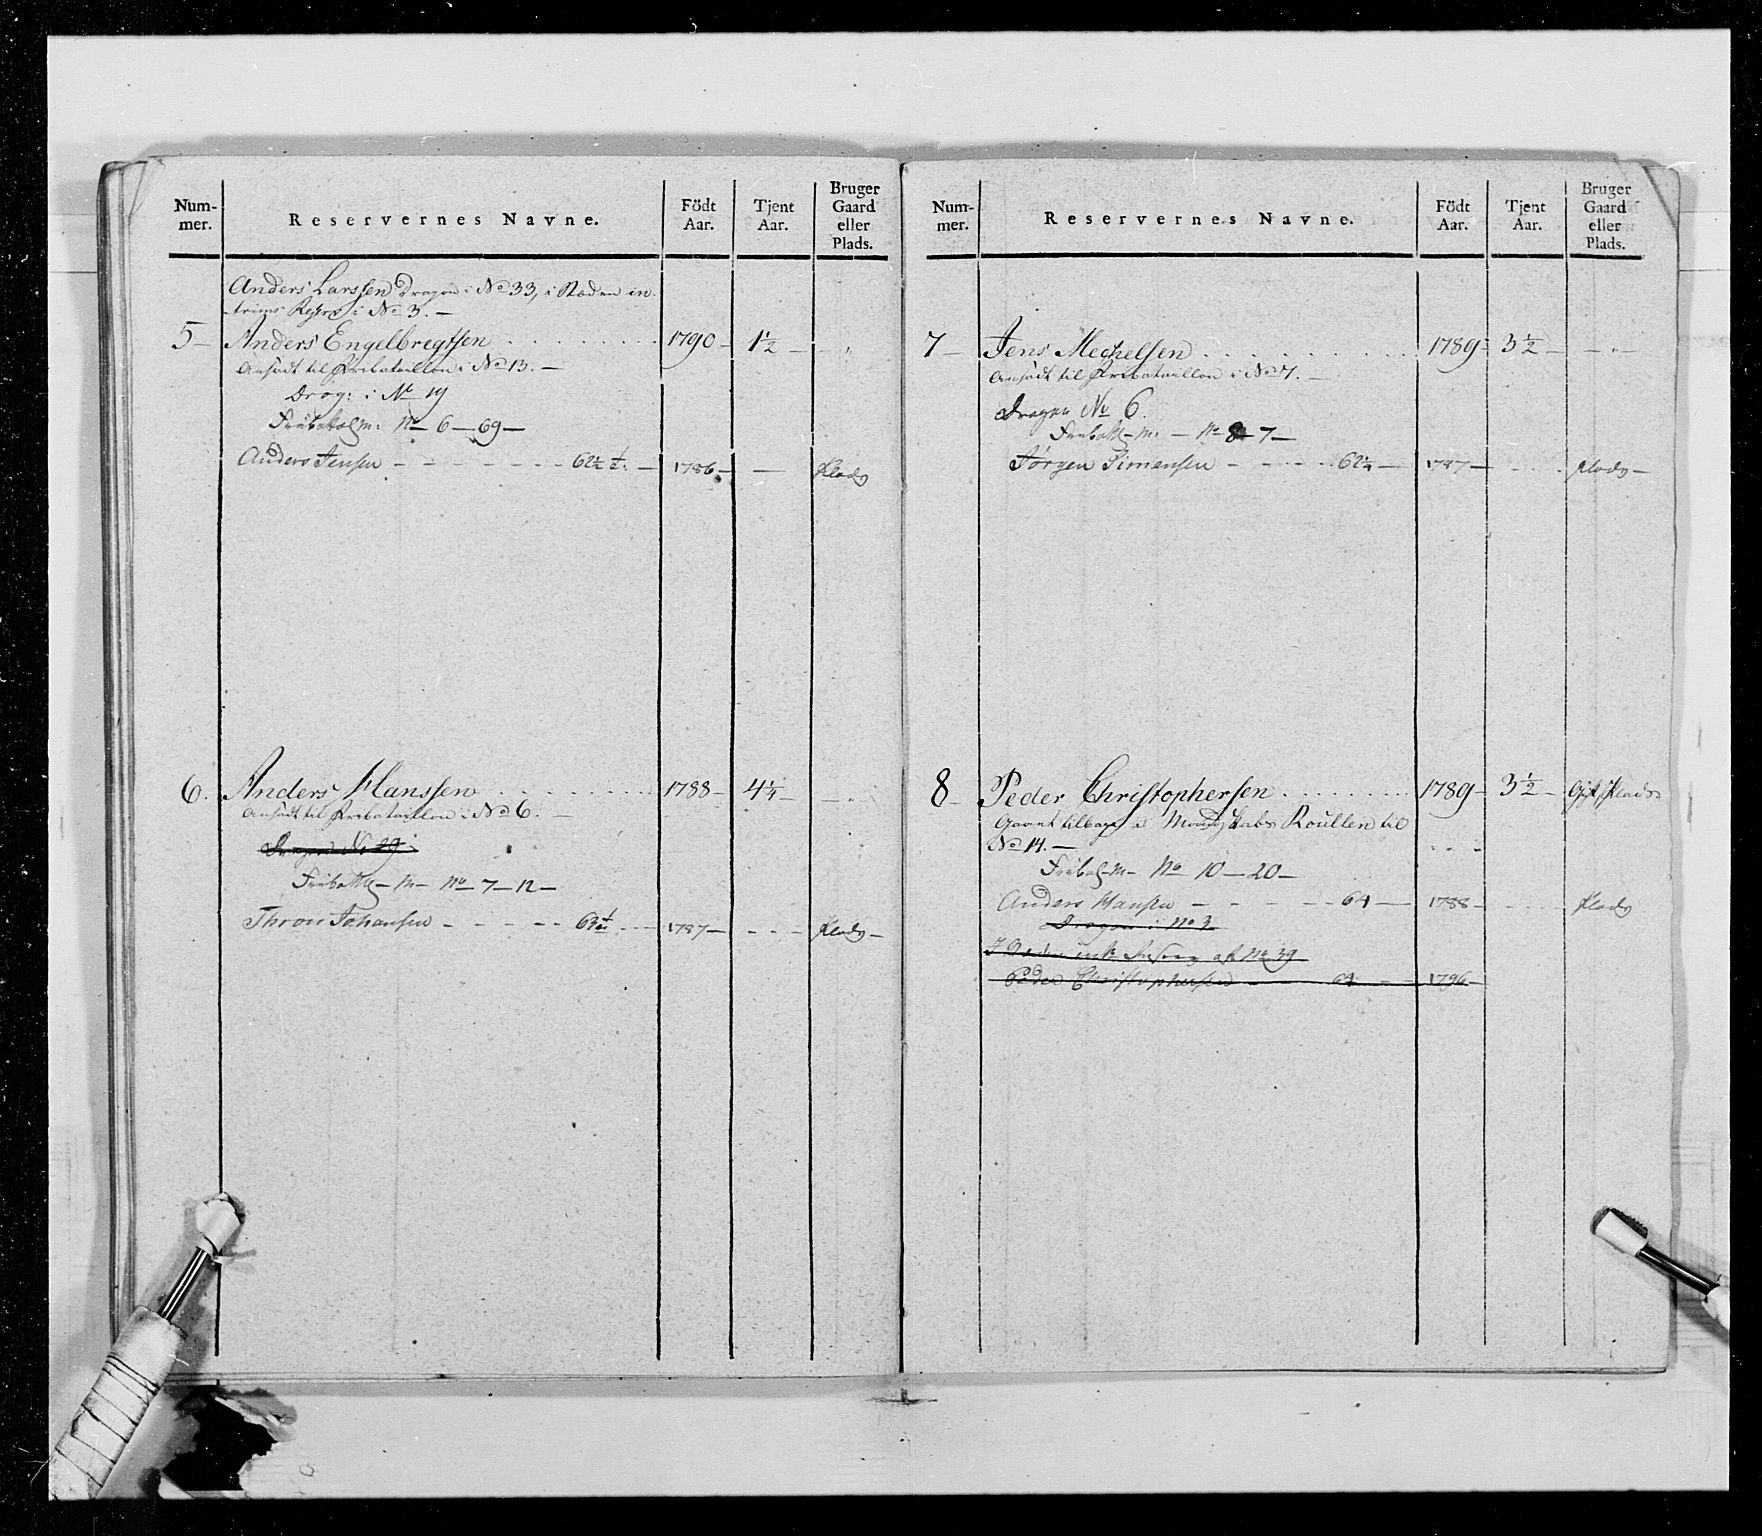 Num-
mer.
Reservernes Navne.
Födt
Aar.
Tjent
Aar.
Bruger
Gaard
eller
Plads.
Anders Larssen Dragon i No 33, i Stæden in-
trims Reserv i No 3. —
5 — Anders Engelbregtsen . . . . . . . . 1790 — 1½ — — " —
Ansadt til Fribataillon i No 13. —
Drag: i No 19
Fribatalm: No 6 — 69 —
Anders Jensen — — — — — — 62½ — 1786 — — Plads
6. Anders Hanssen . . . . . . . . 1788 — 4¼ — — " —
Ansadt til Fribataillon i No 6. —
Dragon No 29
Fribatl — M — No 7 — 12 —
Thron Johansen — — — — 1787 — — — — Plads —
Num-
mer.
Reservernes Navne.
Födt
Aar.
Tjent
Aar.
Bruger
Gaard
eller
Plads.
7 — Jens Mechelsen . . . . . . . . 1789 — 3½ — — " —
Ansadt til Fribataillon i No 7. —
Dragon No 6.
Fribatl — M. — No 8 — 7 —
Jørgen Simensen — — — — 62¼ — 1787 — — — — Plads —
8 — Peder Christophersen . . . . . . . 1789 — 3½ — Gift Plads
Gaaet tilbage i Mandskabs Roullen til
No 14. —
Fribal — M — No 10 — 20 —
Anders Hansen — — — — — 64 — 1788 — — — — Plads
Dragon i No 3
af No 39
Peder Christophersen — — — 64 — — 1796 —